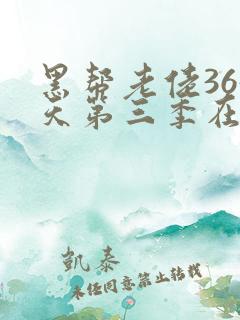 黑帮老佬36
天第三季在
凯泰
未经同意禁止转载